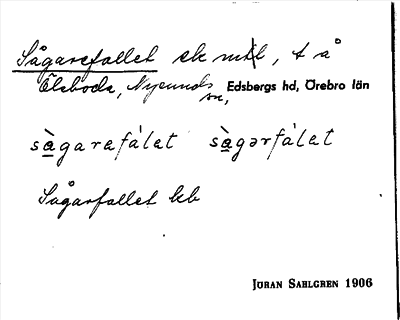 Sågarefallet ek mtl, t å
Ölsboda, Nysunds sn, Edsbergs hd, Örebro län
sàgarefa'lat sàgərfa'lat
Sågarfallet kb
JÖRAN SAHLGREN 1906